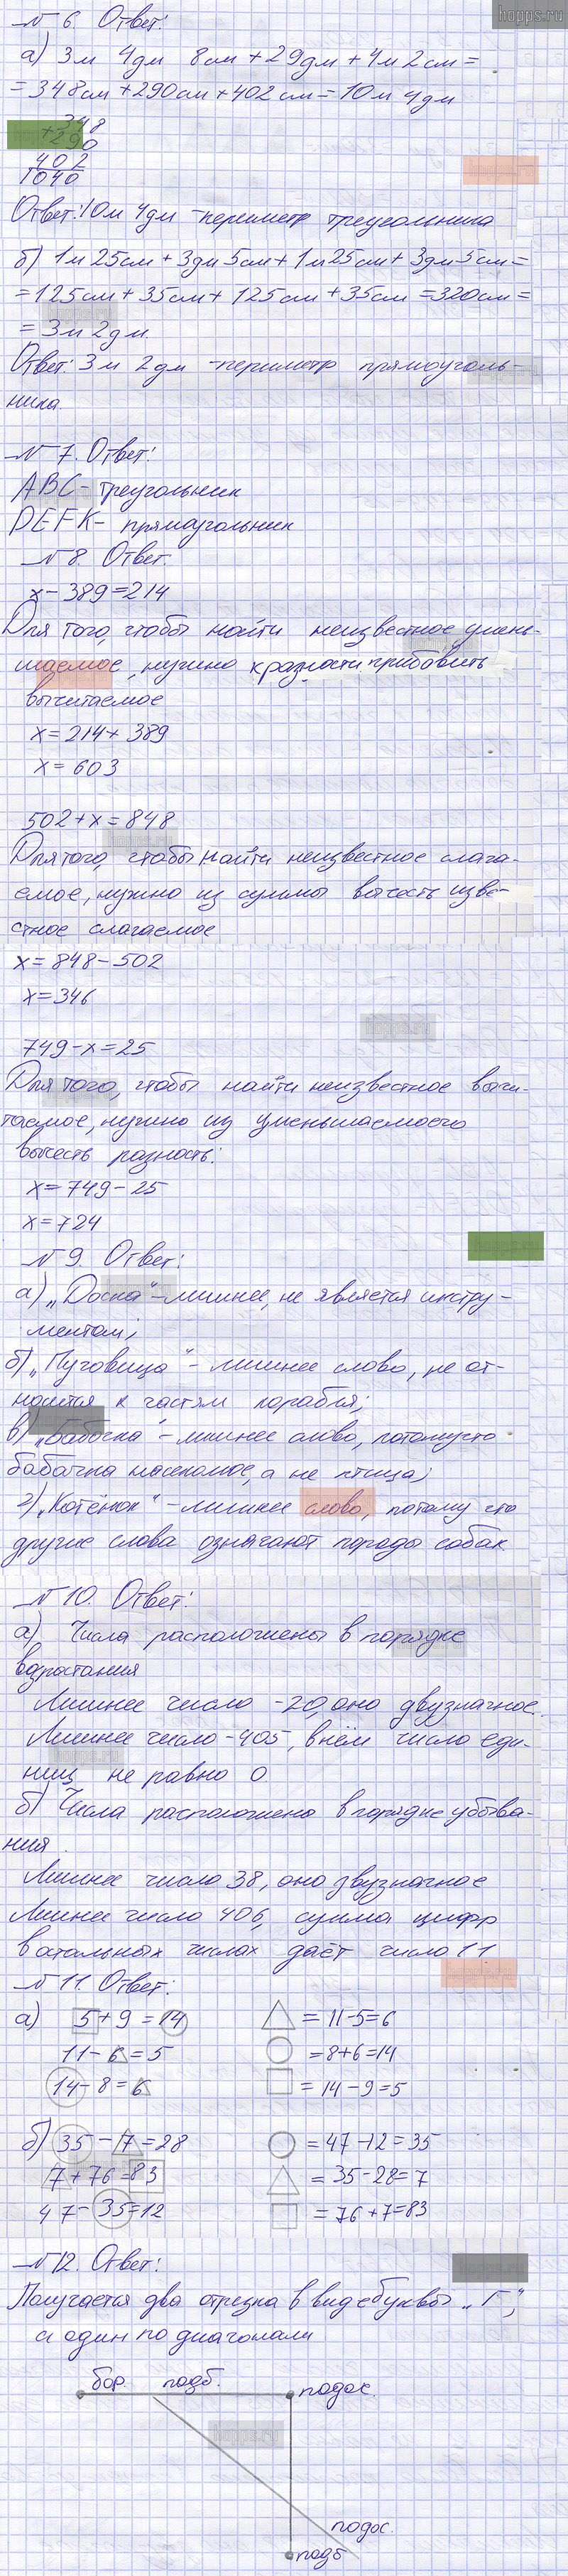 hopps.ru
№ 6. Ответ:
а) 3м 4дм 8см + 29дм + 4м 2см =
= 348см + 290см + 402см = 10м 4дм
348
+290
402
1040
Ответ: 10м 4дм - периметр треугольника
б) 1м 25см + 3дм 5см + 1м 25см + 3дм 5см =
= 125см + 35см + 125см + 35см = 320см =
= 3м 2дм.
Ответ: 3м 2дм - периметр прямоуголь-
ника.
№ 7. Ответ:
ABC - треугольник
DEFK - прямоугольник
№ 8. Ответ.
х - 389 = 214
Для того, чтобы найти неизвестное умень-
шаемое, нужно к разности прибавить
вычитаемое
х = 214 + 389
х = 603
502 + х = 848
Для того, чтобы найти неизвестное слага-
емое, нужно из суммы вычесть изве-
стное слагаемое
х = 848 - 502
х = 346
749 - х = 25
Для того, чтобы найти неизвестное вычи-
таемое, нужно из уменьшаемого
вычесть разность:
х = 749 - 25
х = 724
№ 9. Ответ:
а) „Доска" - лишнее, не является инстру-
ментом;
б) „Пуговица" - лишнее слово, не от-
носится к частям корабля;
в) „Бабочка" - лишнее слово, потомучто
бабочка насекомое, а не птица;
г) „Котёнок" - лишнее слово, потому что
другие слова означают породы собак
№ 10. Ответ:
а) Числа расположены в порядке
возростания
Лишнее число - 20, оно двузначное.
Лишнее число - 405, в нём число еди-
ниц не равно 0
б) Числа расположено в порядке убыва-
ния.
Лишнее число 38, оно двузначное
Лишнее число 406, сумма цифр
в остальных числах даёт число 11
№ 11. Ответ:
а) 5 + 9 = 14 = 11 - 5 = 6
11 - 6 = 5 = 8 + 6 = 14
14 - 8 = 6 = 14 - 9 = 5
б) 35 - 7 = 28 = 47 - 12 = 35
7 + 76 = 83 = 35 - 28 = 7
47 - 35 = 12 = 76 + 7 = 83
№ 12. Ответ:
Получается два отрезка в виде буквы „Г",
а один по диагонали
бор. подб. подос.
hopps.ru
подос.
подб